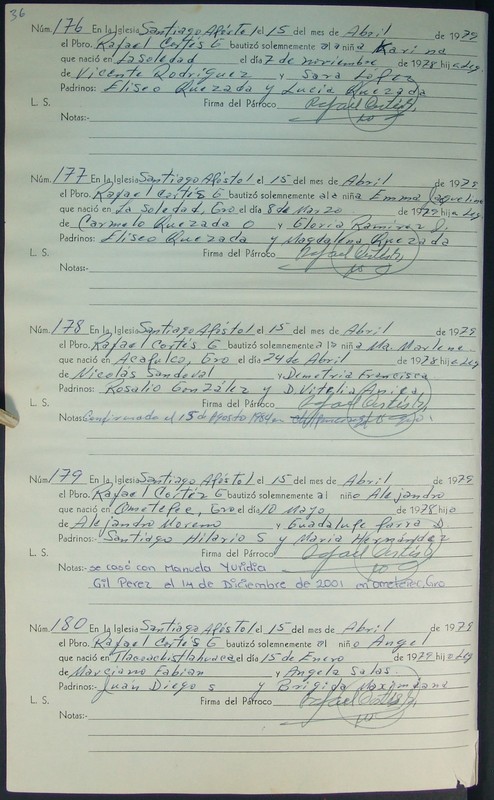 36
Núm. 176 En la Iglesia Santiago Apóstol el 15 del mes de Abril de 1979
el Pbro. Rafael Cortés G bautizó solemnemente a la niña Karina
que nació en La Soledad el día 7 de noviembre de 1978 hij a Leg.
de Vicente Rodríguez y Sara López
Padrinos: Eliseo Quezada y Lucia Quezada
L. S. Firma del Párroco Rafael Cortés G.
Notas:-
Núm. 177 En la Iglesia Santiago Apóstol el 15 del mes de Abril de 1979
el Pbro. Rafael Cortés G bautizó solemnemente a la niña Emma Jaqueline
que nació en La Soledad, Gro el día 8 de Marzo de 1979 hij a Leg
de Carmelo Quezada O y Gloria Ramírez
Padrinos: Eliseo Quezada y Magdalena Quezada
L. S. Firma del Párroco Rafael Cortés G.
Notas:-
Núm. 178 En la Iglesia Santiago Apóstol el 15 del mes de Abril de 1979
el Pbro. Rafael Cortés G bautizó solemnemente a la niña Ma. Marlene
que nació en Acapulco, Gro el día 24 de Abril de 1978 hij a Leg
de Nicolás Sandoval y Demetria Francisca
Padrinos: Rosalio González y D. Vitelia
L. S. Firma del Párroco Rafael Cortés G.
Notas: Confirmada el 15 de Agosto 1984
Núm. 179 En la Iglesia Santiago Apóstol el 15 del mes de Abril de 1979
el Pbro. Rafael Cortés G bautizó solemnemente al niño Alejandro
que nació en Ometepec, Gro el día 10 Mayo de 1978 hij o
de Alejandro Moreno y Guadalupe Parra
Padrinos:- Santiago Hilario S y Maria Hernández
L. S. Firma del Párroco Rafael Cortés G.
Notas:- se casó con Manuela Yuridia
Gil Perez el 14 de Diciembre de 2001 en Ometepec, Gro
Núm. 180 En la Iglesia Santiago Apóstol el 15 del mes de Abril de 1979
el Pbro. Rafael Cortés G bautizó solemnemente al niño Angel
que nació en Tlacoachistlahuaca el día 15 de Enero de 1979 hij o Leg
de Marciano Fabian y Angela Salas
Padrinos:- Juan Diego S y Brigida Maximiana
L. S. Firma del Párroco Rafael Cortés G.
Notas:-